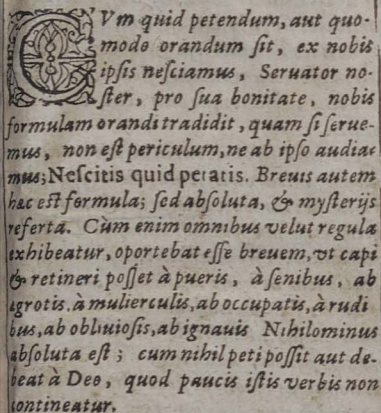 CVm quid petendum, aut quo-
modo orandum sit, ex nobis
ipsis nesciamus, Seruator no-
ster, pro sua bonitate, nobis
formulam orandi tradidit, quam si serue-
mus, non est periculum, ne ab ipso audia-
mus; Nescitis quid petatis. Breuis autem
hæc est formula; sed absoluta, & mysterijs
referta. Cùm enim omnibus velut regula
exhibeatur, oportebat esse breuem, vt capi
& retineri posset à pueris, à senibus, ab
ægrotis, à mulierculis, ab occupatis, à rudi
bus, ab obliuiosis, ab ignauis Nihilominus
absoluta est; cum nihil peti possit aut de-
beat à Deo, quod paucis istis verbis non
contineatur.